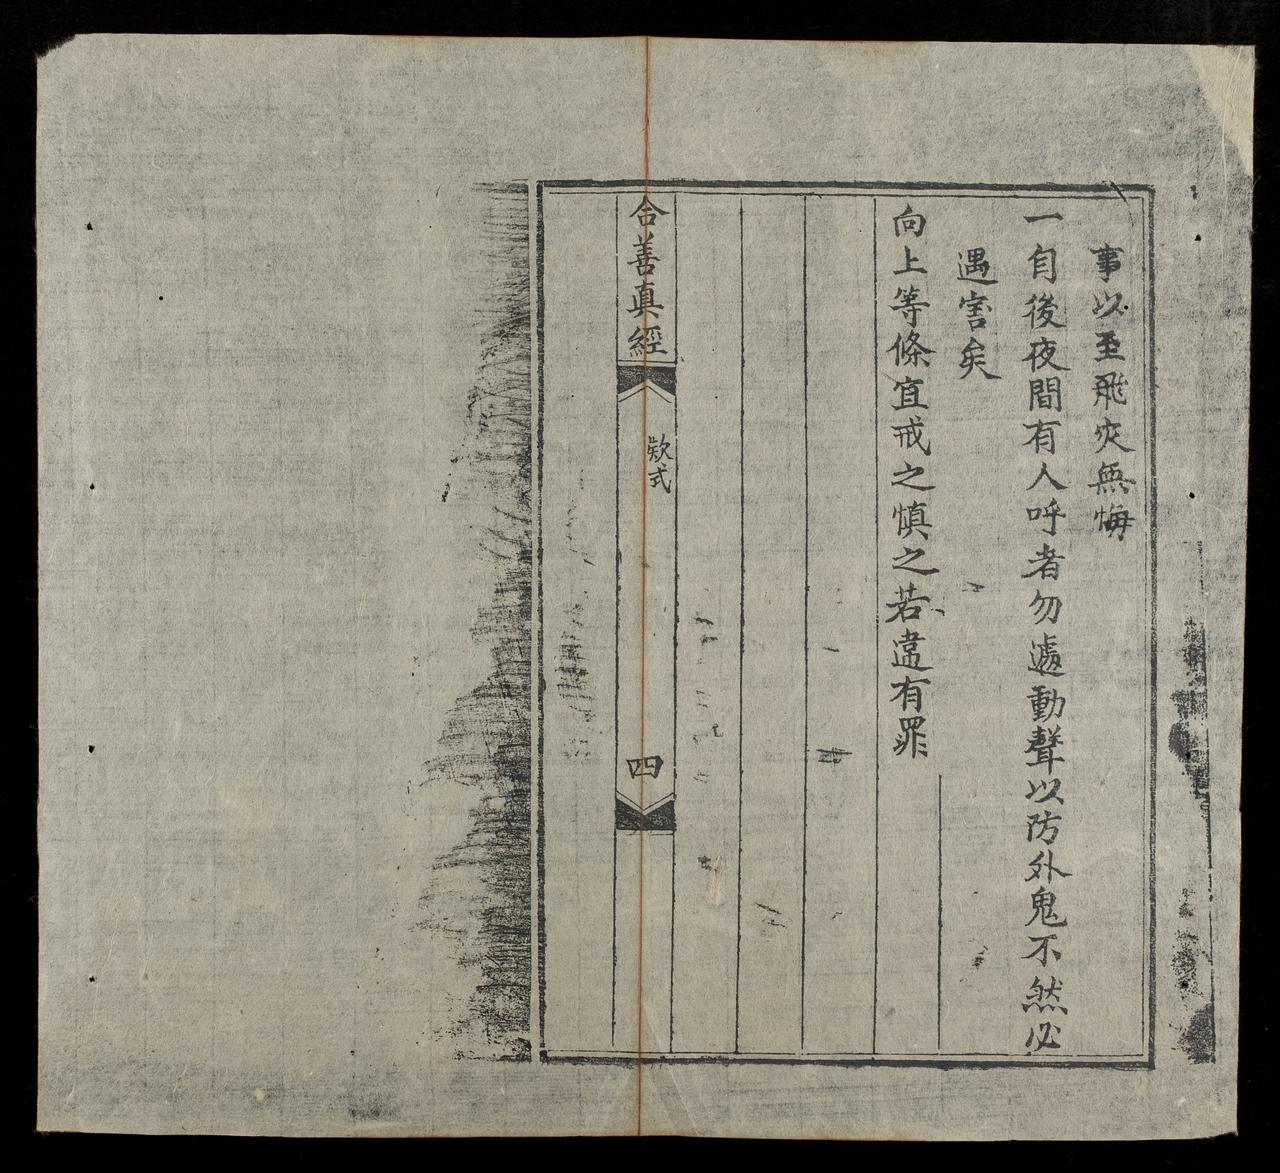 事以至飛灾無悔
一自後夜間有人呼者勿遽動聲以防外鬼不然必
遇害矣
向上等條宜戒之慎之若違有罪
合善真經
欵式
四